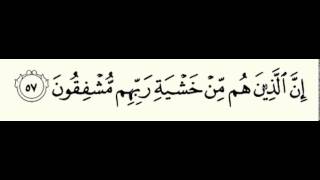 إِنَّ ٱلَّذِينَ هُم مِّنْ خَشْيَةِ رَبِّهِم مُّشْفِقُونَ ۝٥٧